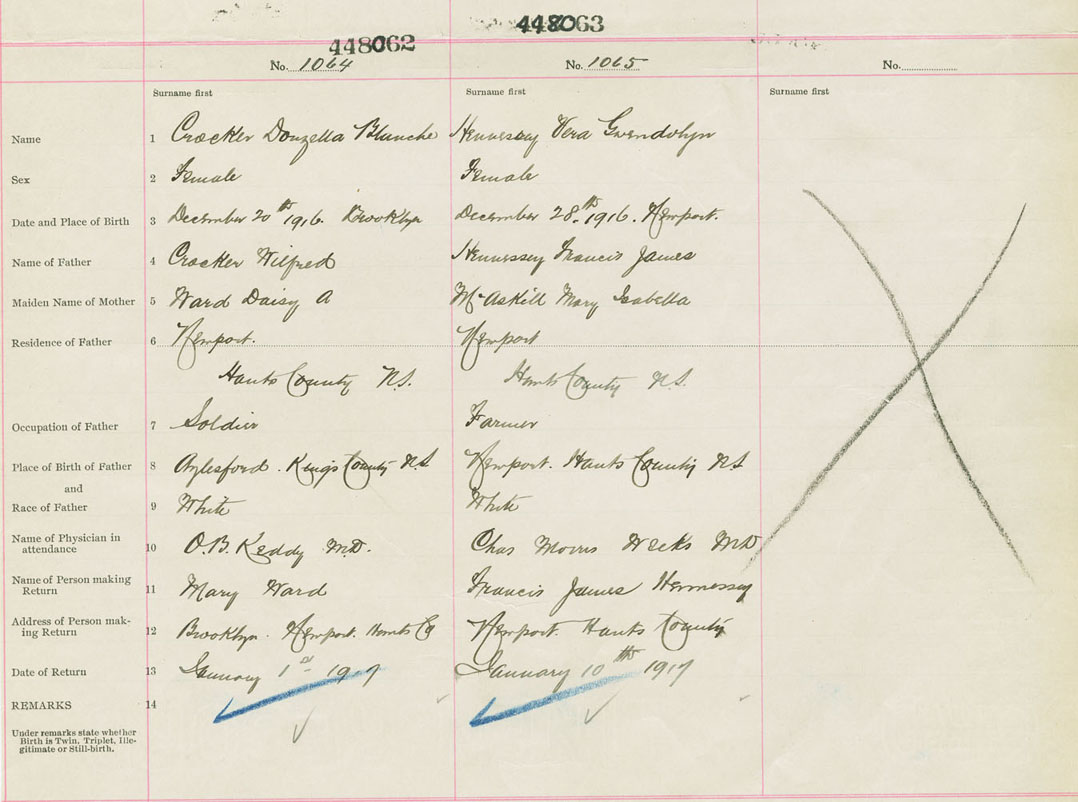 448062
448063
No. 1064
No. 1065
No.
Surname first
Surname first
Surname first
Name 1 Crocker Donzella Blanche Hennessey Vera Gwendolyn
Sex 2 Female Female
Date and Place of Birth 3 December 20th 1916. Brooklyn December 28th 1916. Newport.
Name of Father 4 Crocker Wilfred Hennessey Francis James
Maiden Name of Mother 5 Ward Daisy A McAskill Mary Isabella
Residence of Father 6 Newport. Newport
Hants County N.S. Hants County N.S.
Occupation of Father 7 Soldier Farmer
Place of Birth of Father 8 Aylesford. Kings County NS Newport. Hants County NS
and
Race of Father 9 White White
Name of Physician in
attendance 10 O.B. Keddy M.D. Chas Morris Weeks MD
Name of Person making
Return 11 Mary Ward Francis James Hennessey
Address of Person mak-
ing Return 12 Brooklyn. Newport. Hants Co Newport. Hants County
Date of Return 13 January 1st 1917 January 10th 1917
REMARKS 14
Under remarks state whether
Birth is Twin, Triplet, Ille-
gitimate or Still-birth.